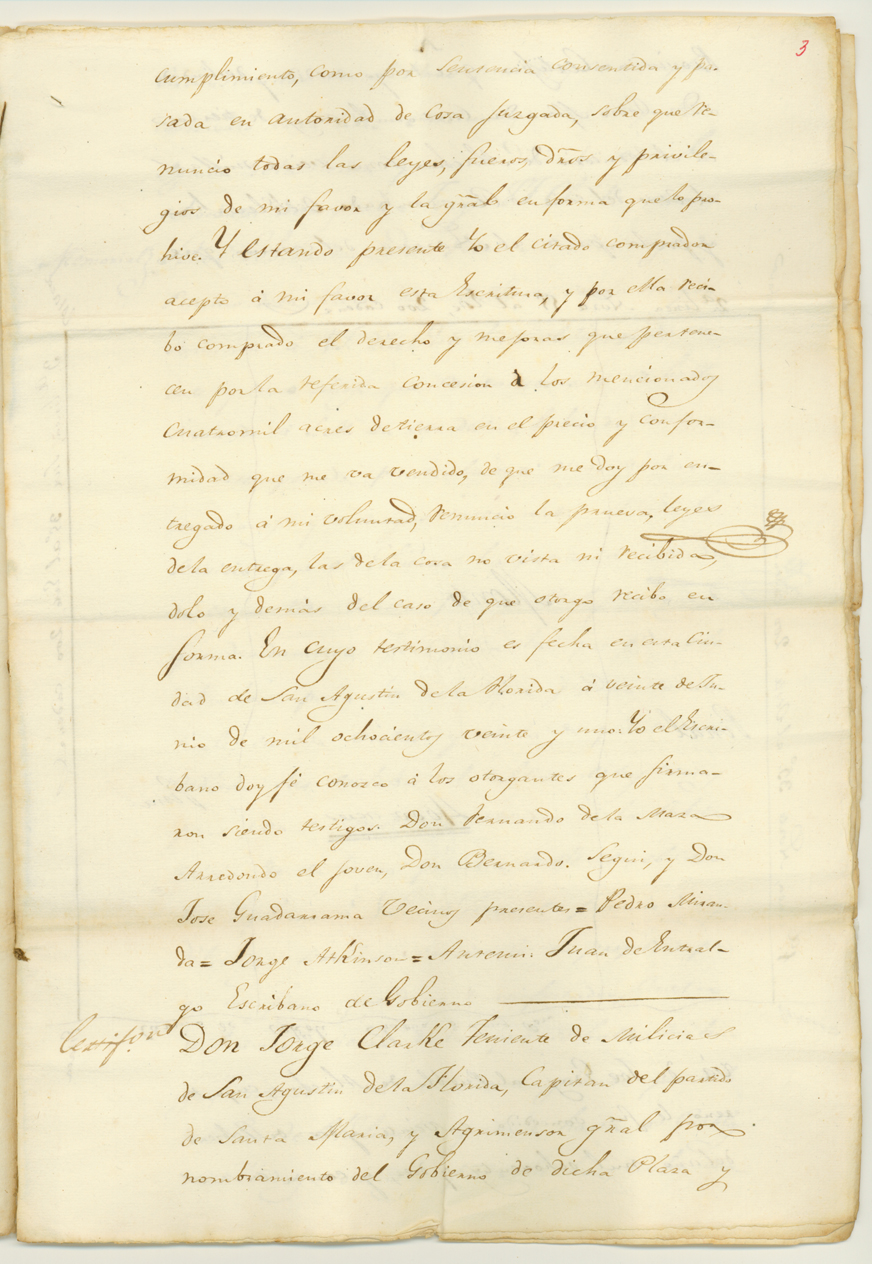 3
cumplimiento, como por Sentencia consentida y pa-
sada en autoridad de cosa juzgada, sobre que re-
nuncio todas las leyes, fueros, dros. y privile-
gios de mi favor y la gñral en forma que lo pro-
hive. Y estando presente Yo el citado comprador
acepto á mi favor esta Escritura, y por ella reci-
bo comprado el derecho y mejoras que pertene-
cen por la referida concesion á los mencionados
cuatromil acres de tierra en el precio y confor-
midad que me va vendido, de que me doy por en-
tregado á mi voluntad, renuncio la prueva, leyes
de la entrega, las de la cosa no vista ni recibida,
dolo y demás del caso de que otorgo recibo en
forma. En cuyo testimonio es fecha en esta Ciu-
dad de San Agustin de la Florida á veinte de Ju-
nio de mil ochocientos veinte y uno. Yo el Escri-
bano doy fé conozco á los otorgantes que firma-
ron siendo testigos. Don Fernando de la Maza
Arredondo el joven, Don Bernardo. Segui, y Don
Jose Guadarrama Vecinos presentes = Pedro Miran-
da = Jorge Atkinson = Antemi: Juan de Entral-
go Escribano de Gobierno
Certifon
Don Jorge Clarke Teniente de Milicias
de San Agustin de la Florida, Capitan del partido
de Santa Maria, y Agrimensor gñral por
nombramiento del Gobierno de dicha Plaza y